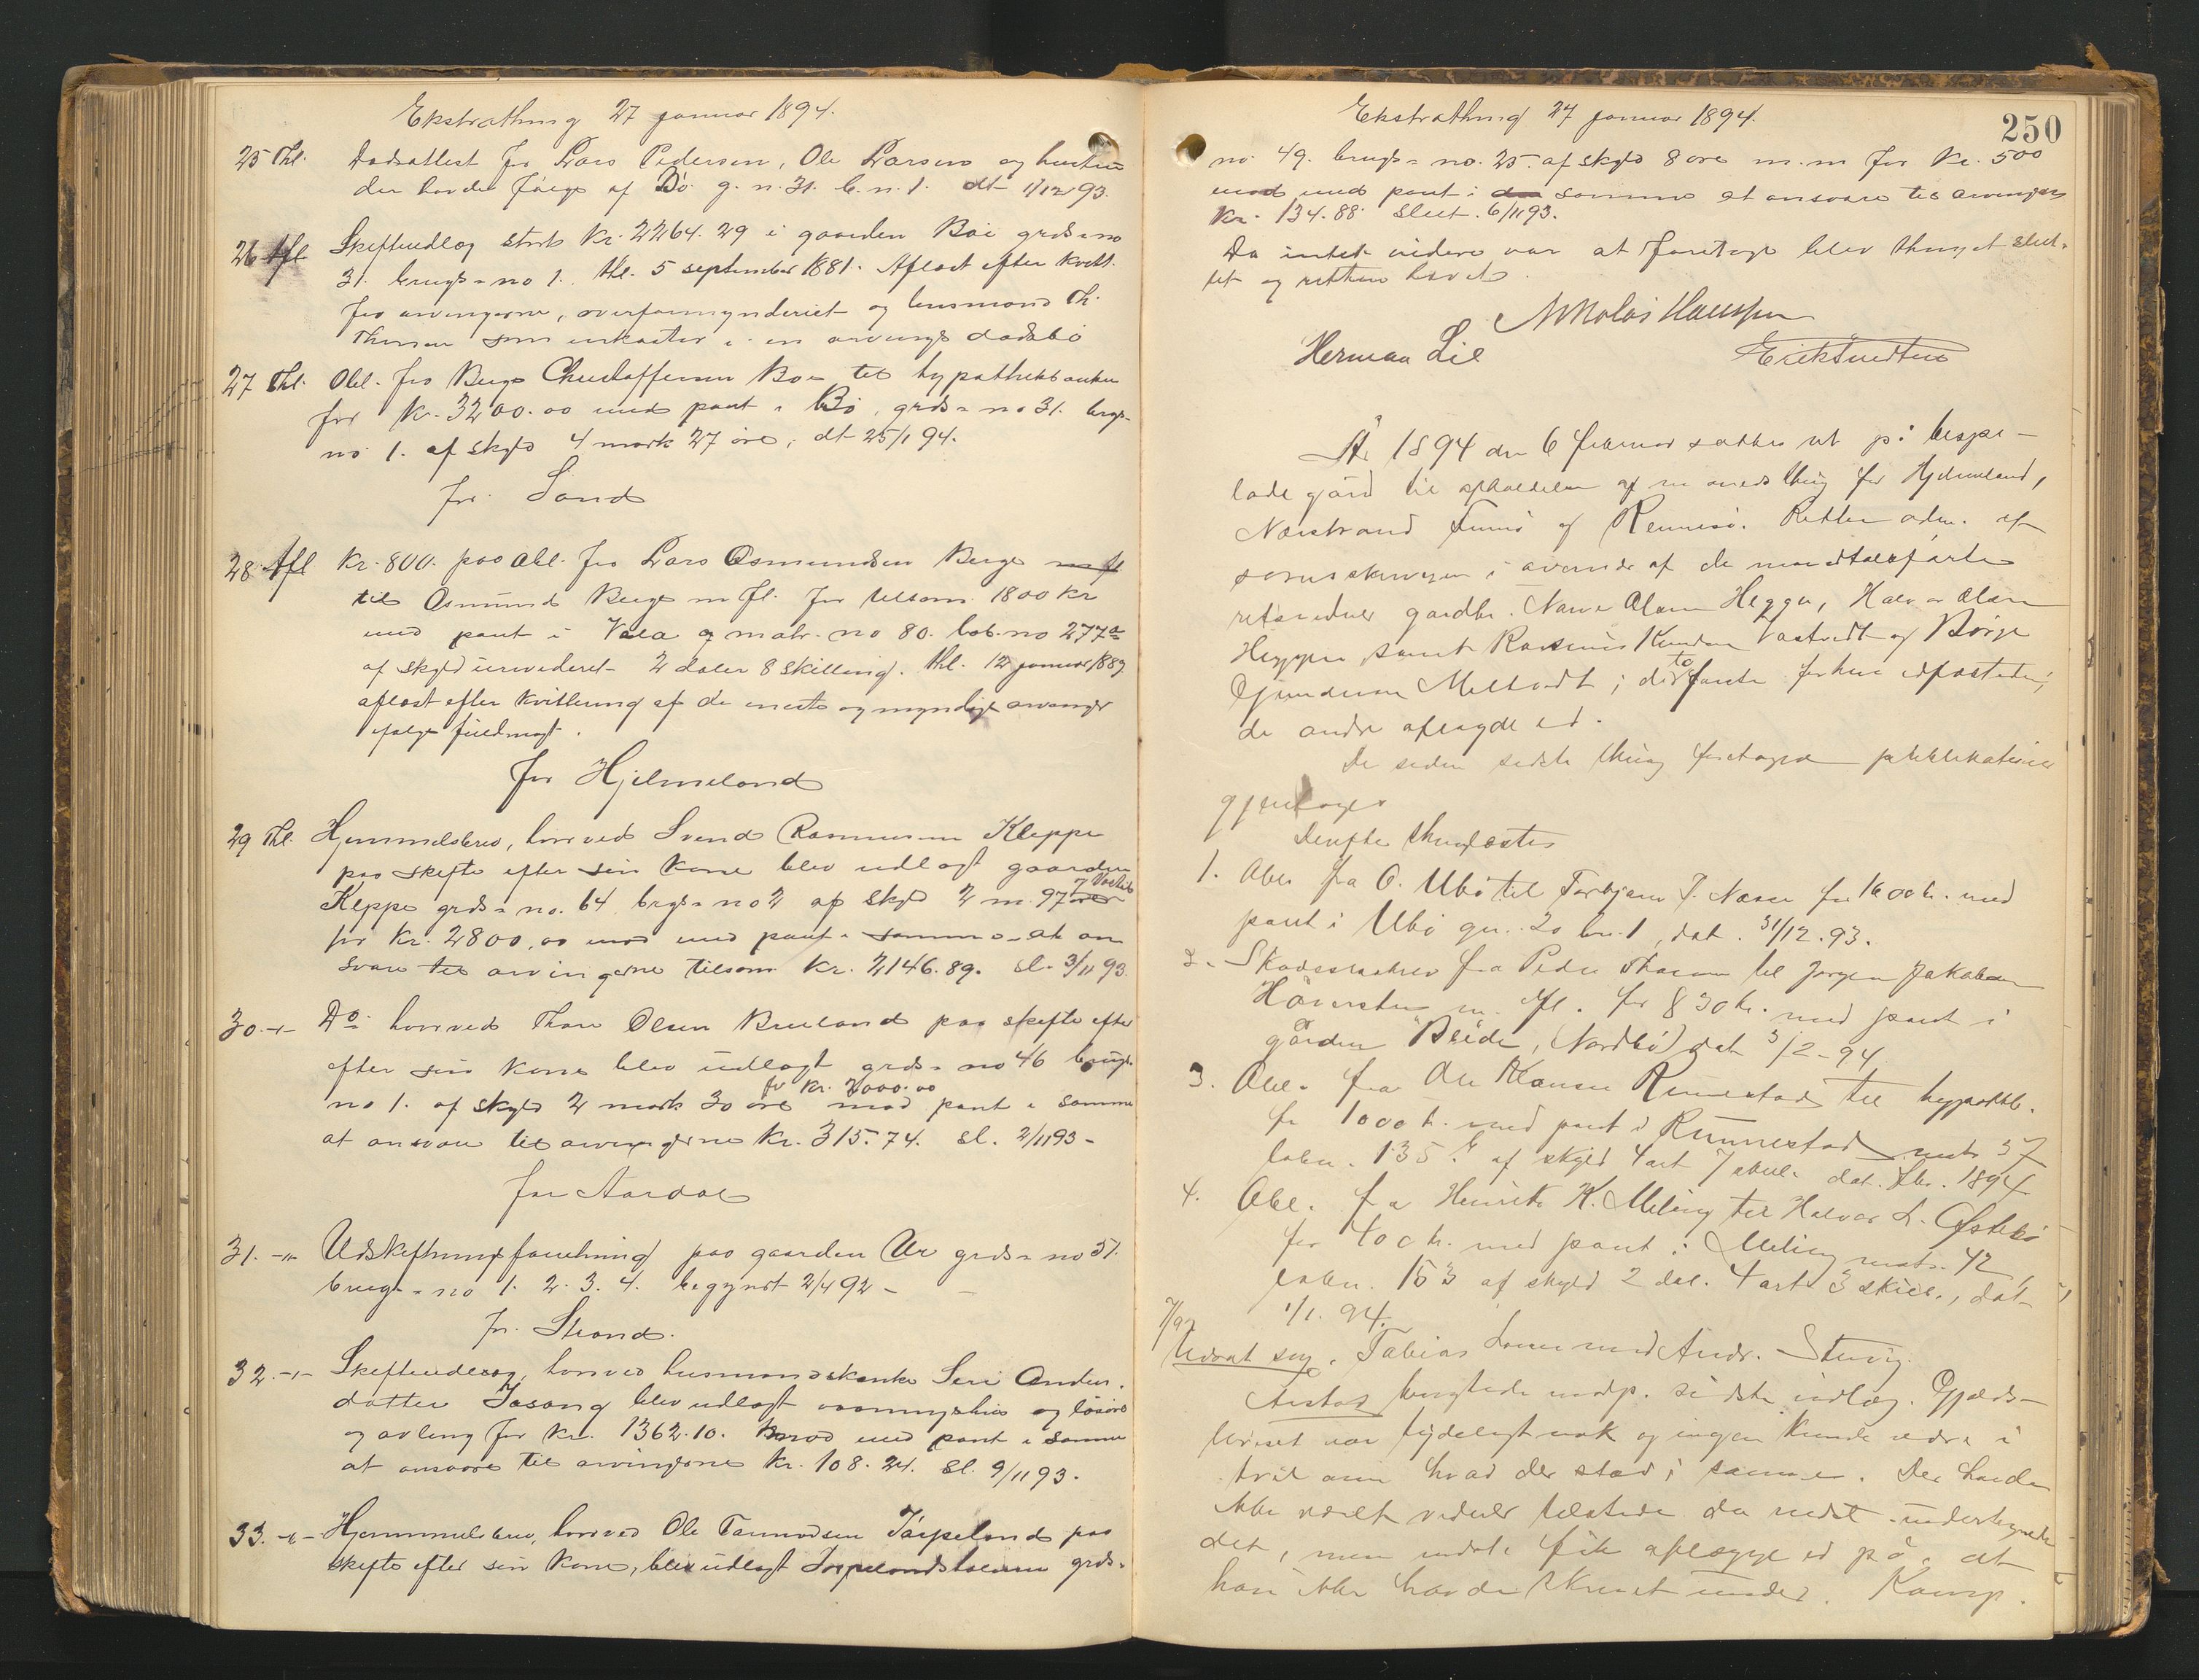 Ekstrathing 27 januar 1894.
25 Thl. Dødsattest for Lars Pedersen, Ole Larsen og hustru
der havde fæige af Bö g. n. 31. b. n. 1. dt 1/12 93.
26 Afl Skifteudlæg stort Kr. 2264. 29 i gaarden Böe grds=no
31. brugs=no 1. thl. 5 september 1881. Aflæst efter kvitt.
fra arvingerne, overformynderiet og lensmand Th.
Thorsen som i en arvings dødsbo
27 Thl. Obl. fra Berge Christoffersen Böe til hypothekbanken
for Kr. 3200.00 med pant i Bö, grds=no 31. brgs-
no 1. af skyld 4 mark 27 öre, dt 25/1 94.
for Sand
28 Afl Kr. 800. paa obl. fra Lars Osmundsen Berge m fl
til Osmund Berge m fl. for tilsam. 1800 kr
med pant i matr. no 80. løb. no 277a
af skyld urevideret 2 daler 8 skilling. thl. 12 januar 1889
aflæst efter kvittering af de eneste og myndige arvinger
ifølge fuldmagt.
for Hjelmeland
29 Thl. Hjemmelsbrev, hvorved Svend Rasmussen Kleppe
paa skifte efter sin kone blev udlagt gaarden
Kleppe grds=no. 64 brgs=no 2 af skyld 2 m. 97 öre
for Kr. 2800,00 mod med pant i samme at an
svare til arvingerne tilsam Kr. 2146.89. sl. 3/11 93.
30. -"- Do. hvorved Thore Olsen Breiland paa skifte efter
efter sin kone blev udlagt grds=no 46 brugs-
for Kr. 2000.00
no 1. af skyld 2 mark 30 öre mod pant i samme
at ansvare til arvingerne Kr. 315.74. sl. 2/11 93-
for Aardal
31. -"- Udskiftningsforretning paa gaarden Ur grds=no 51.
brugs=no 1. 2. 3. 4. begyndt 2/4 92-
for Strand.
32. -"- Skifteudlæg, hvorved husmandsenke Seri Anders.
datter Tasang blev udlagt og løsøre
og avling for Kr. 1362.10. mod med pant i samme
at ansvare til arvingerne Kr. 108. 24. sl. 9/11 93.
33. -"- Hjemmelsbrev, hvorved Ole Tarmodsen Tørpeland paa
skifte efter sin kone, blev udlagt grds=
Ekstrathing 27 januar 1894.
250
no. 49. brugs=no. 25. af skyld 8 öre m. m for Kr. 500
mod med pant i samme at ansvare til arvingen
Kr. 134.88. slut. 6/11 93.
Da intet videre var at foretage blev thinget slut-
tet og retten hævet.
Nikolai Hansson
Herman Lie
Erik
År 1894 den 6 februar sattes ret på bispe-
ladegård til afholdelse af månedsthing for Hjelmeland,
Nærstrand Finnö og Rennesö. Retten adm. af
sorenskriveren i overvær af de meddtagførte
retsvidner gaardbr. Heggen, Halvor Olsen
Heggen samt Rasmus Knudsen Vastvedt og Börge
Gjundersen Meltvedt; de to første forhen edfæstede,
de andre aflagde ed.
De siden sidste thing foretagne publikationer
gjentages
Derefter thinglæstes
1. Obl. fra O. Ubö til Torbjørn T. Næsse for 1600 kr. med
pant i Ubö gn. 20 bn. 1, dat. 31/12. 93.
2. Skadesløsbrev fra Peder Tharam til Jørgen Jakobsen
m. fl. for 830 kr. med pant i
gården Bleide, (Nordbö) dat 3/2 - 94
3. Obl. fra Ole Klausen Rennestad til hypothb.
for 1000 kr. med pant i Rennestad mtr 37
løbn. 135 b af skyld 4 ort 7 skill. dat. 1894
4. Obl. fra Henrik K. Meling til Halvor L. Østebö
for 400 kr. med pant i Meling matr. 42,
løbn. 153 af skyld 2 dal. 4 ort 3 skill., dat
1/1. 94.
Udsat sag. Tobias med Andr. Stensvig.
Aarstad modp. sidste indlæg. Gjælds-
beviset var tydeligt nok og ingen kunde være i
tvil om hvad der stod i samme. Der havde
ikke været vidner tilstede da indst. undertegnede
det, men indst. fik aflægge ed på, at
han ikke havde skrevet under. Kamp.